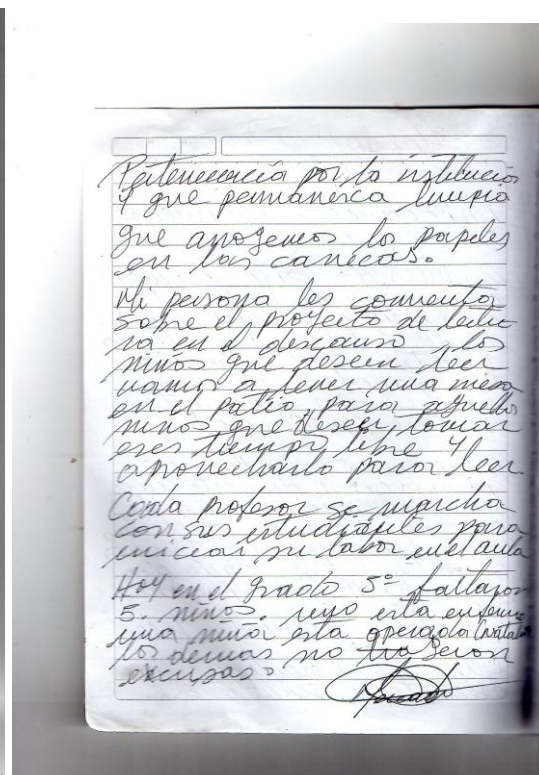 Pertenencia por la institución
y que permanesca limpia
que arrojemos los papeles
en las canecas.
Mi persona les comenta
sobre el proyecto de lectu
ra en el descanso los
niños que deseen leer
vamos a tener una mesa
en el patio, para aquellos
niños que deseen tomar
eses tiempo libre y
aprovecharlo para leer
Cada profesor se marcha
con sus estudiantes para
iniciar su labor en el aula
Hoy en el grado 5º faltaron
5. niños. uno esta enfermo
una niña esta operada
los demas no trajeron
excusas.